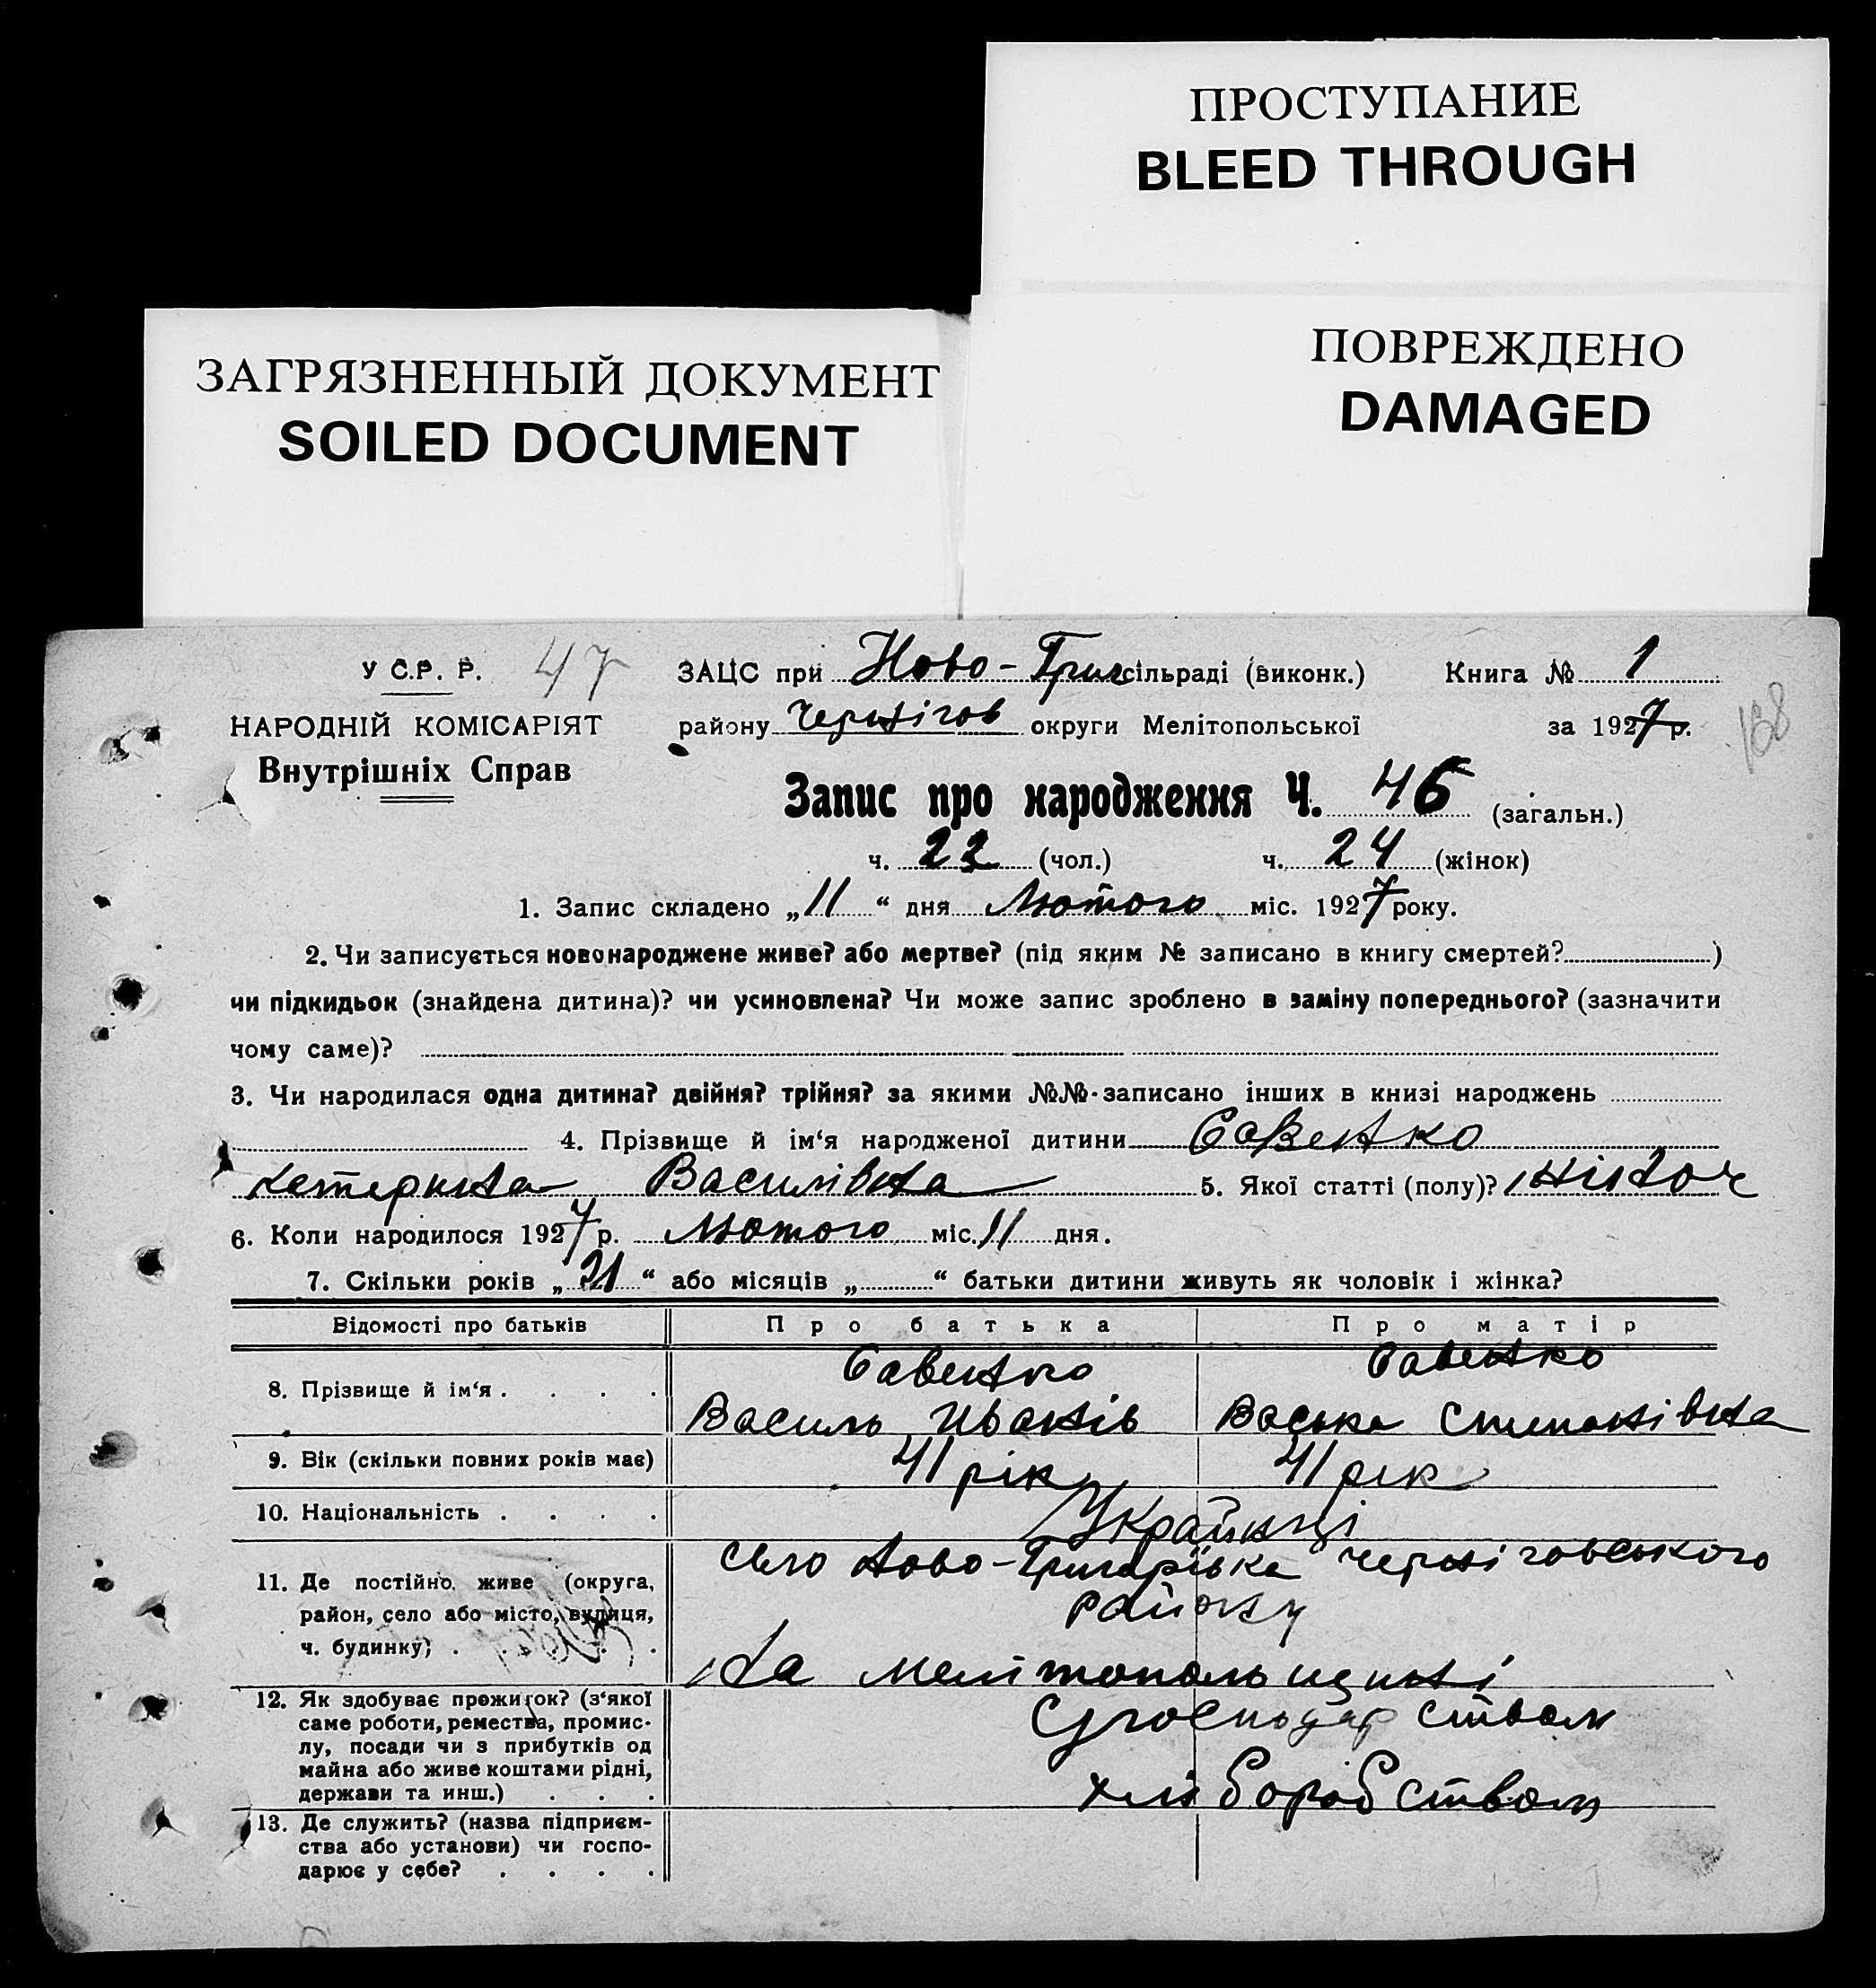 ПРОСТУПАНИЕ
BLEED THROUGH
ПОВРЕЖДЕНО
DAMAGED
ЗАГРЯЗНЕННЫЙ ДОКУМЕНТ
SOILED DOCUMENT
У С.Р. Р. 47 ЗАЦС при Ново-Григ сільраді (виконк.) Книга № 1
НАРОДНІЙ КОМІСАРІЯТ району Чернігов округи Мелітопольської за 1927 р. 168
Внутрішніх Справ
Запис про народження Ч. 46 (загальн.)
ч. 22 (чол.) ч. 24 (жінок)
1. Запис складено „11“ дня Лютого міс. 1927 року.
2. Чи записується новонароджене живе? або мертве? (під яким № записано в книгу смертей? )
чи підкидьок (знайдена дитина)? чи усиновлена? Чи може запис зроблено в заміну попереднього? (зазначити
чому саме)?
3. Чи народилася одна дитина? двійня? трійня? за якими №№ записано інших в книзі народжень
4. Прізвище й ім‘я народженої дитини Савенко
Катерина Василівна 5. Якої статті (полу)? жіноч
6. Коли народилося 1927 р. Лютого міс. 11 дня.
7. Скільки років „21“ або місяців „ “ батьки дитини живуть як чоловік і жінка?
Відомості про батьків Про батька Про матір
Савенко Савенко
8. Прізвище й ім‘я . . . .
Василь Иванів Васька Степанівна
9. Вік (скільки повних років має) 41 рік 41 рік
10. Національність . . . . Українці
село Ново-Григорівка Черніговського
11. Де постійно живе (округа,
район, село або місто, вулиця, району
ч. будинку) . . . .
на мелітопольщині
12. Як здобуває прожиток? (з‘якої
саме роботи, ремества, промис-
лу, посади чи з прибутків од
майна або живе коштами рідні,
держави та инш.) . . . хліборобством
13. Де служить? (назва підприєм-
ства або установи) чи госпо-
дарює у себе? . . . .